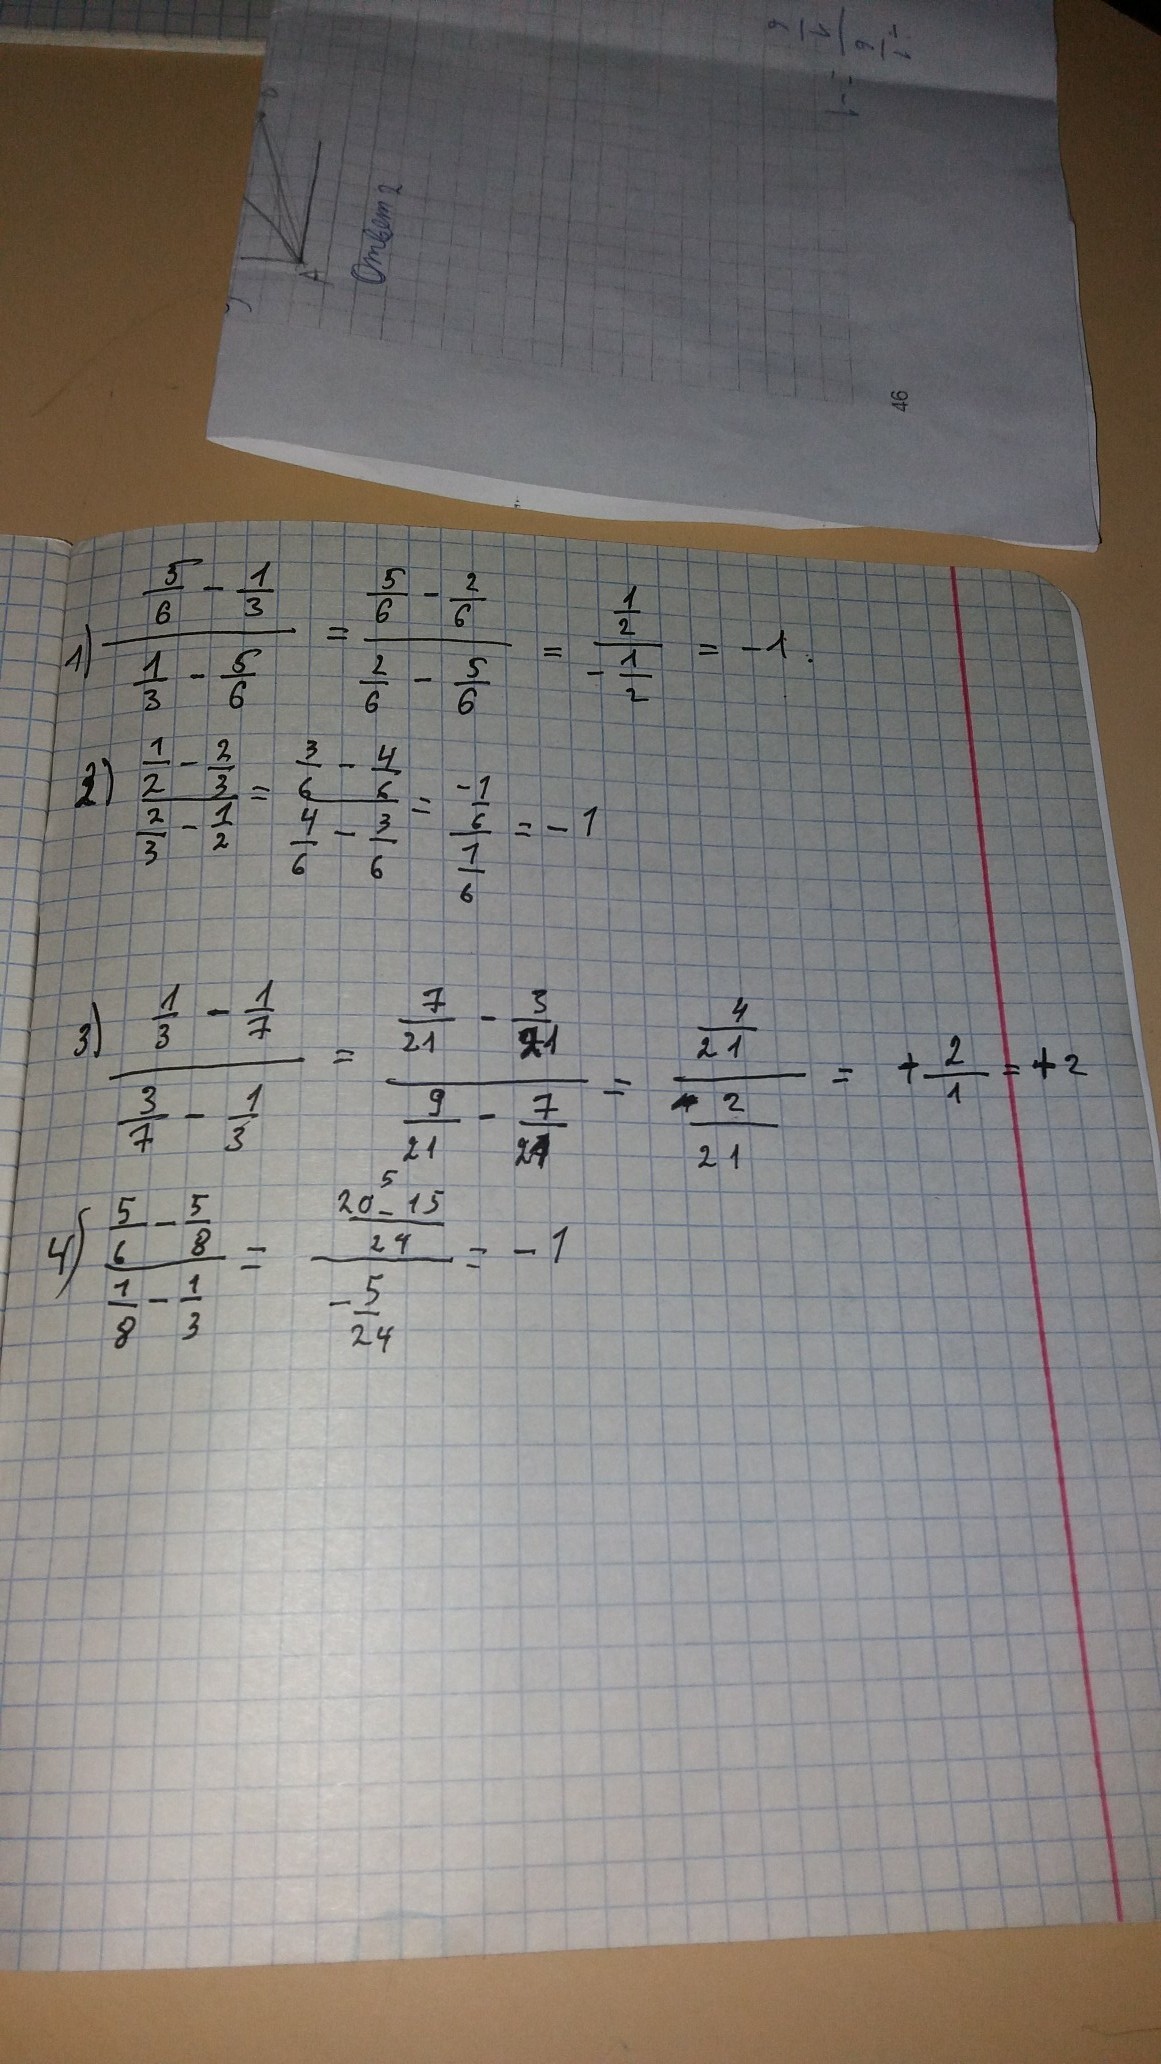 -1/6 / 1/6 = -1
A
Ответ 2
46
1) (5/6 - 1/3) / (1/3 - 5/6) = (5/6 - 2/6) / (2/6 - 5/6) = (1/2) / (-1/2) = -1.
2) (1/2 - 2/3) / (2/3 - 1/2) = (3/6 - 4/6) / (4/6 - 3/6) = (-1/6) / (1/6) = -1
3) (1/3 - 1/7) / (3/7 - 1/3) = (7/21 - 3/21) / (9/21 - 7/21) = (4/21) / (2/21) = +2/1 = +2
4) (5/6 - 5/8) / (1/8 - 1/3) = ((20 - 15)/24) 5 / (-5/24) = -1